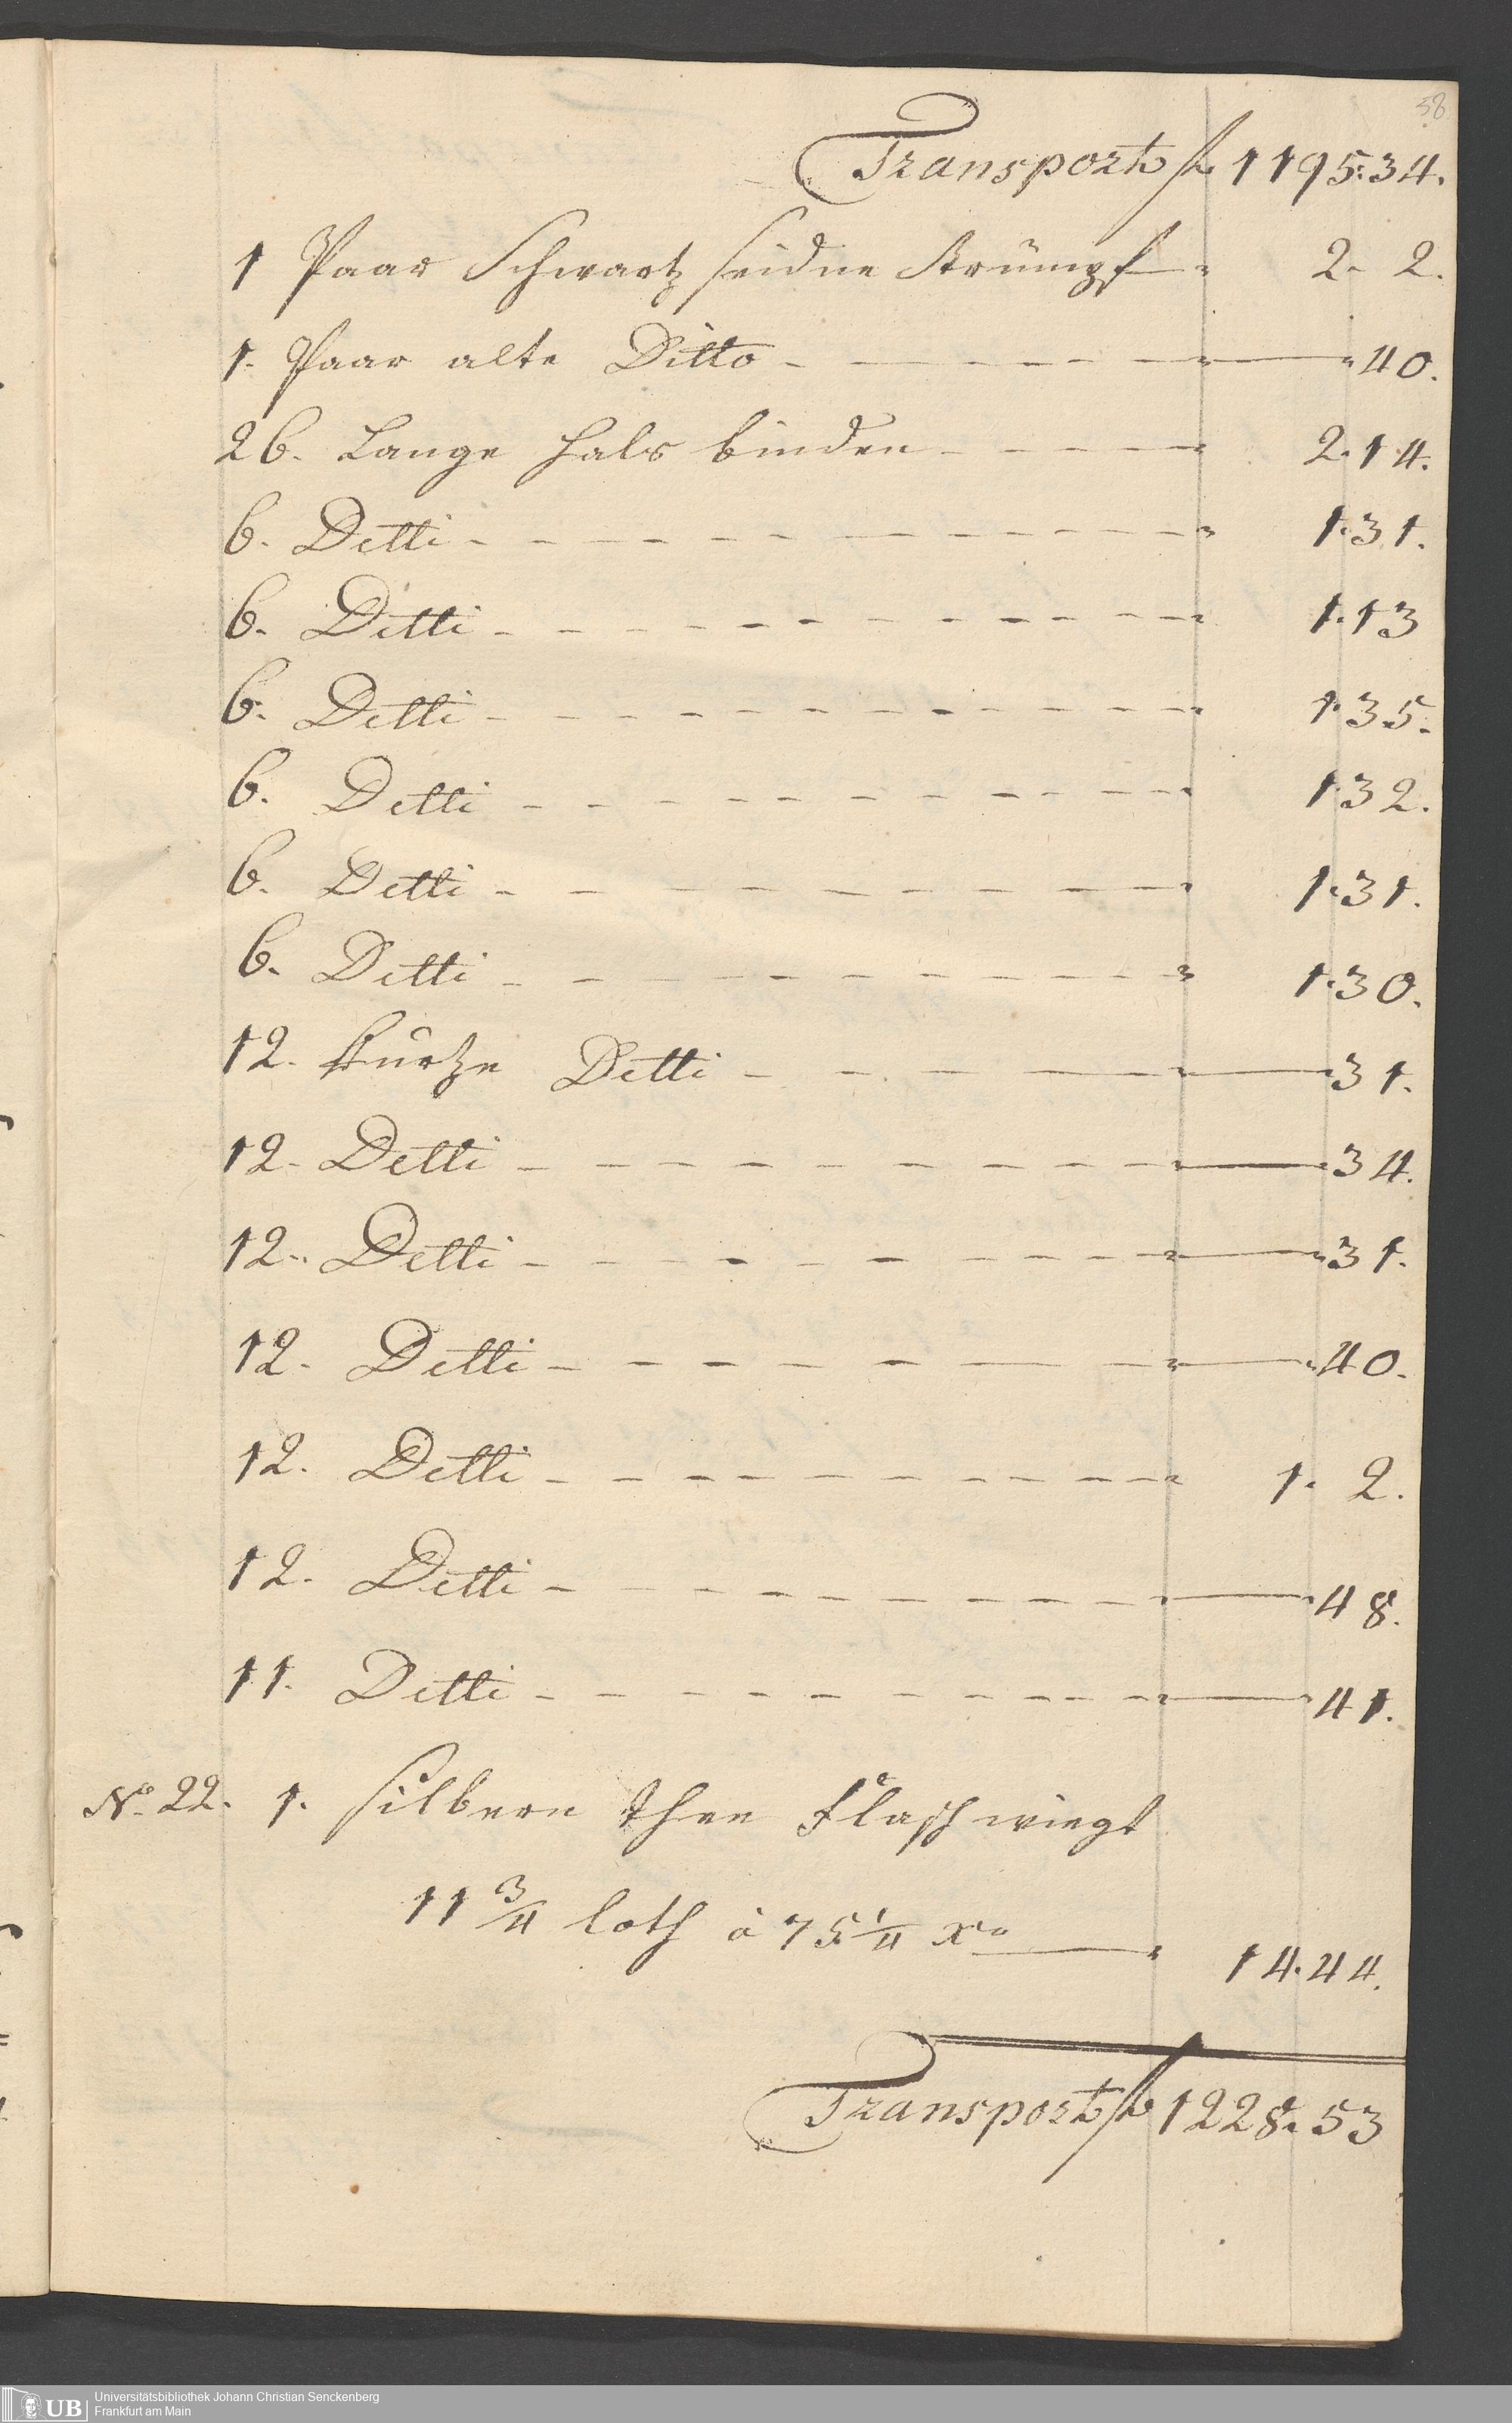 58
Transport fl 1195.34.
1 Paar Schwartz seidne Strümpf 2. 2.
1. Paar alte Ditto 40.
26. Lange Hals binden 2.14.
6. Detti 1.31.
6. Detti 1.13
6. Detti 1.35.
6. Detti 1.32.
6. Detti 1.31.
6. Detti 1.30.
12. Kurtze Detti 31.
12. Detti 34.
12. Detti 31.
12. Detti 40.
12. Detti 1. 2.
12. Detti 48.
11. Detti 41.
No. 22. 1. silbern Thee Flasch wiegt
11 3/4 loth à 75 1/4 xr 14.44.
Transport fl 1228.53
UB Universitätsbibliothek Johann Christian Senckenberg
Frankfurt am Main